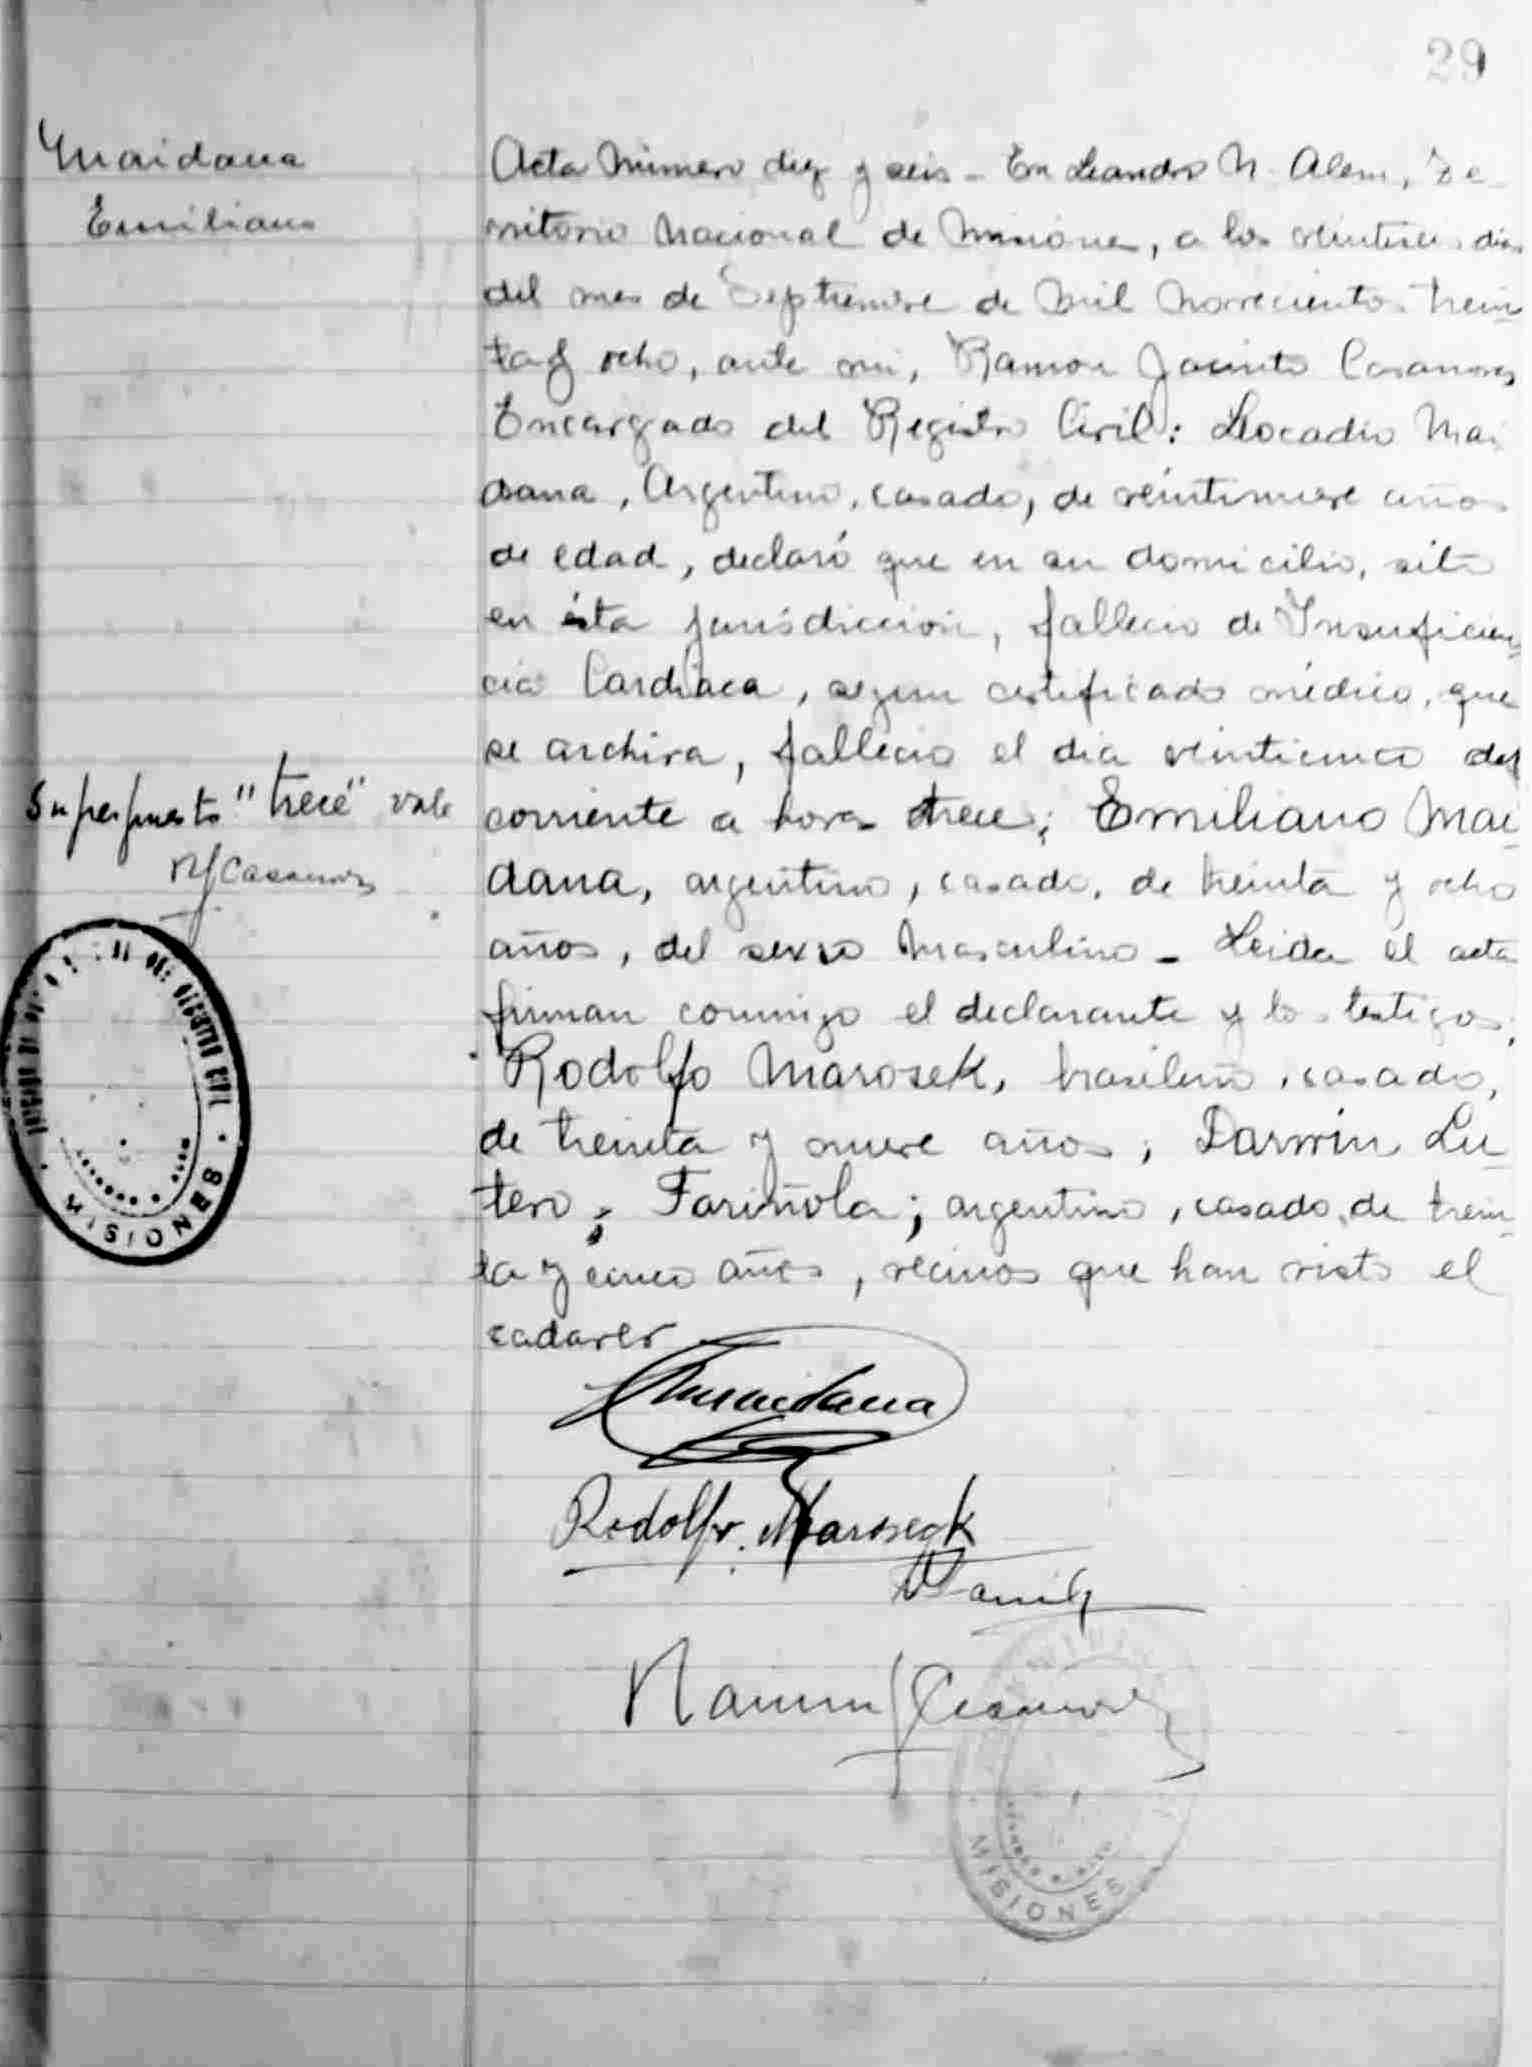 29
Maidana
Emiliano
Acta Número diez y seis - En Leandro N. Alem, Te-
rritorio Nacional de Misiones, a los veintiseis dias
del mes de Septiembre de mil novecientos trein-
ta y ocho, ante mi, Ramon Jacinto Casanova
Encargado del Registro Civil: Leocadio Mai
dana, Argentino, casado, de veintinueve años
de edad, declaró que en su domicilio, sito
en ésta jurisdiccion, fallecio de Insuficien-
cia Cardiaca, segun certificado médico, que
se archiva, fallecio el dia veinticinco del
corriente a hora trece; Emiliano Mai-
dana, argentino, casado, de treinta y ocho
años, del sexo masculino - Leida el acta
firman conmigo el declarante y los testigos;
Rodolfo Marosek, brasileño, casado,
de treinta y nueve años; Darwin Lu-
tero; Fariñola; argentino, casado, de trein-
ta y cinco años, vecinos que han visto el
cadaver
Superpuesto "trece" vale
RJCasanova
MISIONES
Maidana
Rodolfo Marosegk
Ramon J Casanova
MISIONES